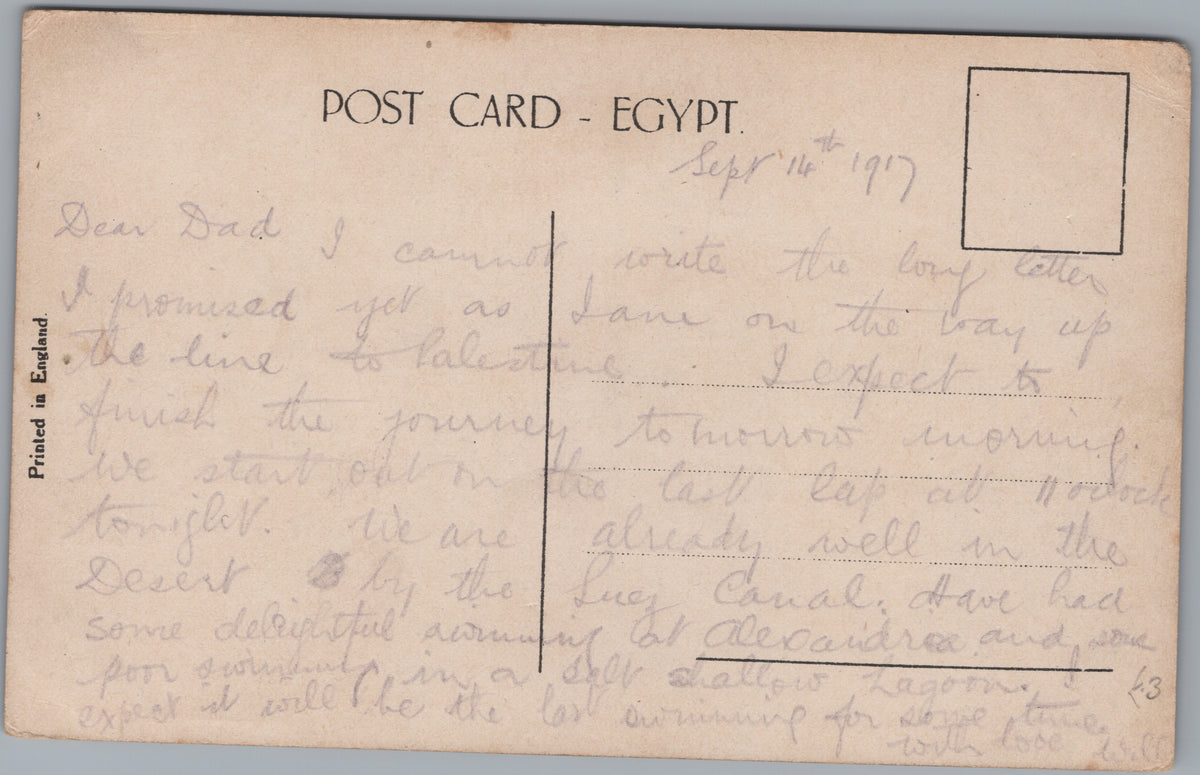 POST CARD - EGYPT.
Sept 14th 1917
Dear Dad
I cannot write the long letter
I promised yet as I am on the way up
the line to Palestine. I expect to
finish the journey tomorrow morning.
We start out on the last lap at 11 oclock
tonight. We are already well in the
Desert by the Suez Canal. Have had
some delightful swimming at Alexandria and some
poor swimming in a salt shallow Lagoon. I
expect it will be the last swimming for some time
with love Will
Printed in England.
£3